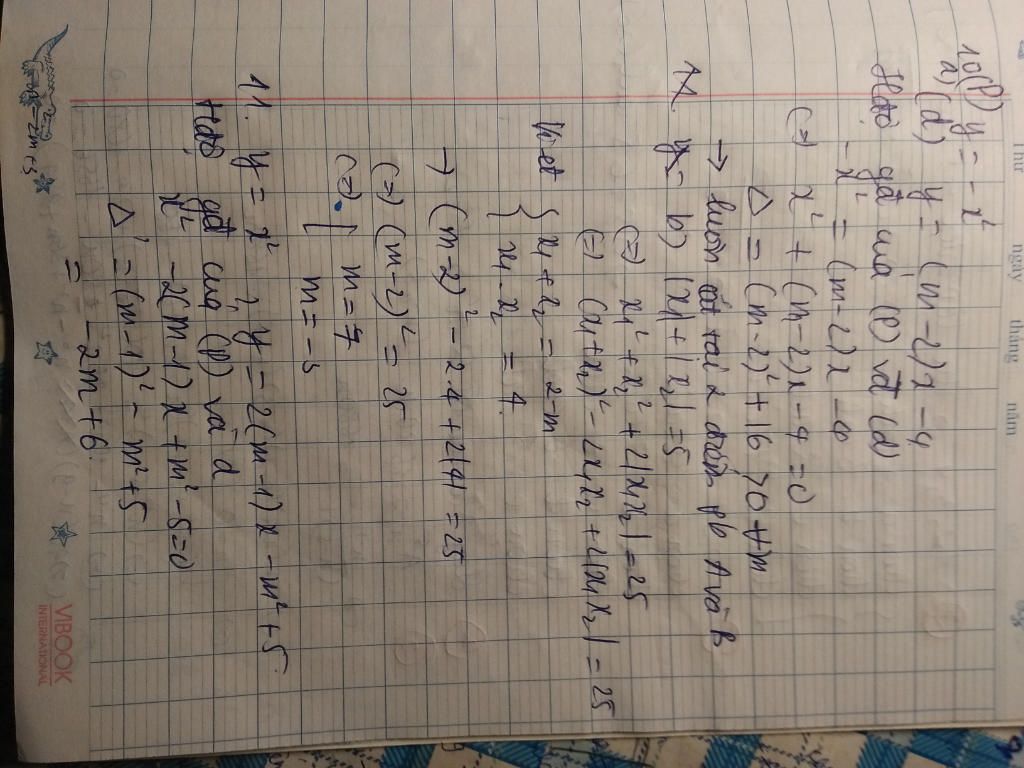 Thứ ngày tháng năm
10(P) y = -x²
a) (d) y = (m-2)x -4
Hđộ gđ của (P) và (d)
-x² = (m-2)x -4
(=) x² + (m-2)x -4 =0
Δ = (m-2)² +16 >0 ∀m
→ luôn cắt tại 2 điểm pb A và B
b) |x₁| + |x₂| =5
(=) x₁² + x₂² + 2|x₁x₂| =25
(=) (x₁+x₂)² - 2x₁x₂ + 2|x₁x₂| = 25
Vi et { x₁ + x₂ = 2-m
x₁ - x₂ = 4
→ (m-2)² - 2.4 + 2|4| =25
(=) (m-2)² = 25
(=) [ m = 7
m = -3
11. y = x² ; y = 2(m-1)x - m² +5
Hđộ gđ của (P) và d
x² -2(m-1)x + m² -5=0
Δ' = (m-1)² - m² +5
= -2m +6
VIBOOK
INTERNATIONAL